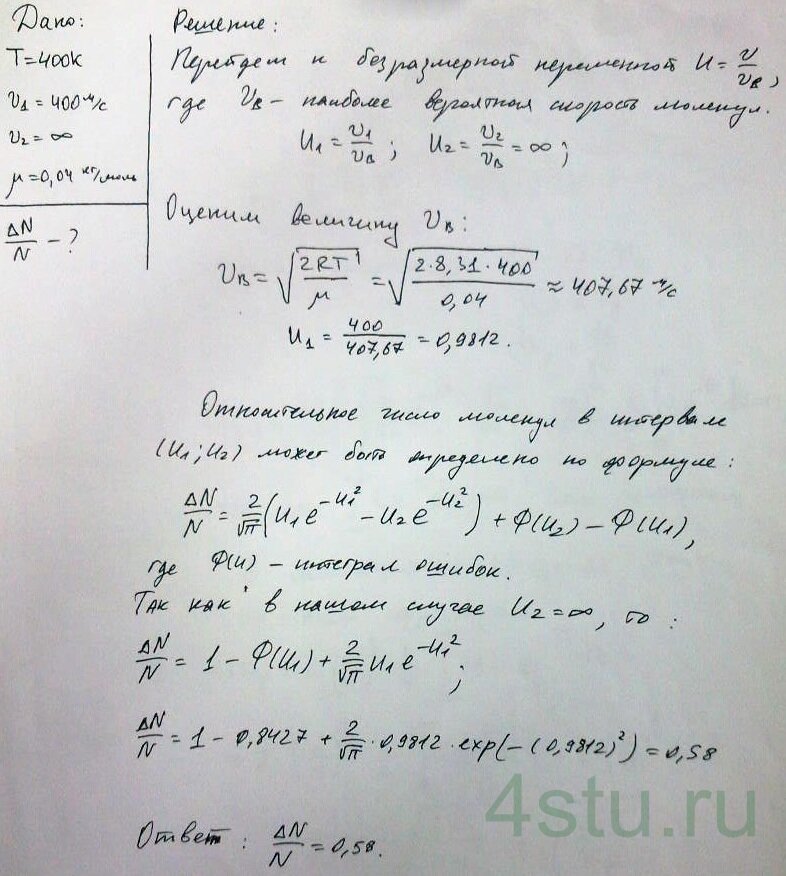 Дано:
T=400К
υ1 = 400 м/с
υ2 = ∞
μ=0,04 кг/моль
ΔN/N - ?
Решение:
Перейдем к безразмерной переменной U = υ/υв,
где υв - наиболее вероятная скорость молекул.
U1 = υ1/υв ; U2 = υ2/υв = ∞ ;
Оценим величину υв:
υв = √(2RT/μ) = √(2·8,31·400/0,04) ≈ 407,67 м/с
U1 = 400/407,67 = 0,9812.
Относительное число молекул в интервале
(U1; U2) может быть определено по формуле:
ΔN/N = 2/√π (U1 e^(-U1²) - U2 e^(-U2²)) + Ф(U2) - Ф(U1),
где Ф(U) - интеграл ошибок.
Так как в нашем случае U2 = ∞, то :
ΔN/N = 1 - Ф(U1) + 2/√π U1 e^(-U1²) ;
ΔN/N = 1 - 0,8427 + 2/√π · 0,9812 · exp(-(0,9812)²) = 0,58
Ответ : ΔN/N = 0,58.
4stu.ru